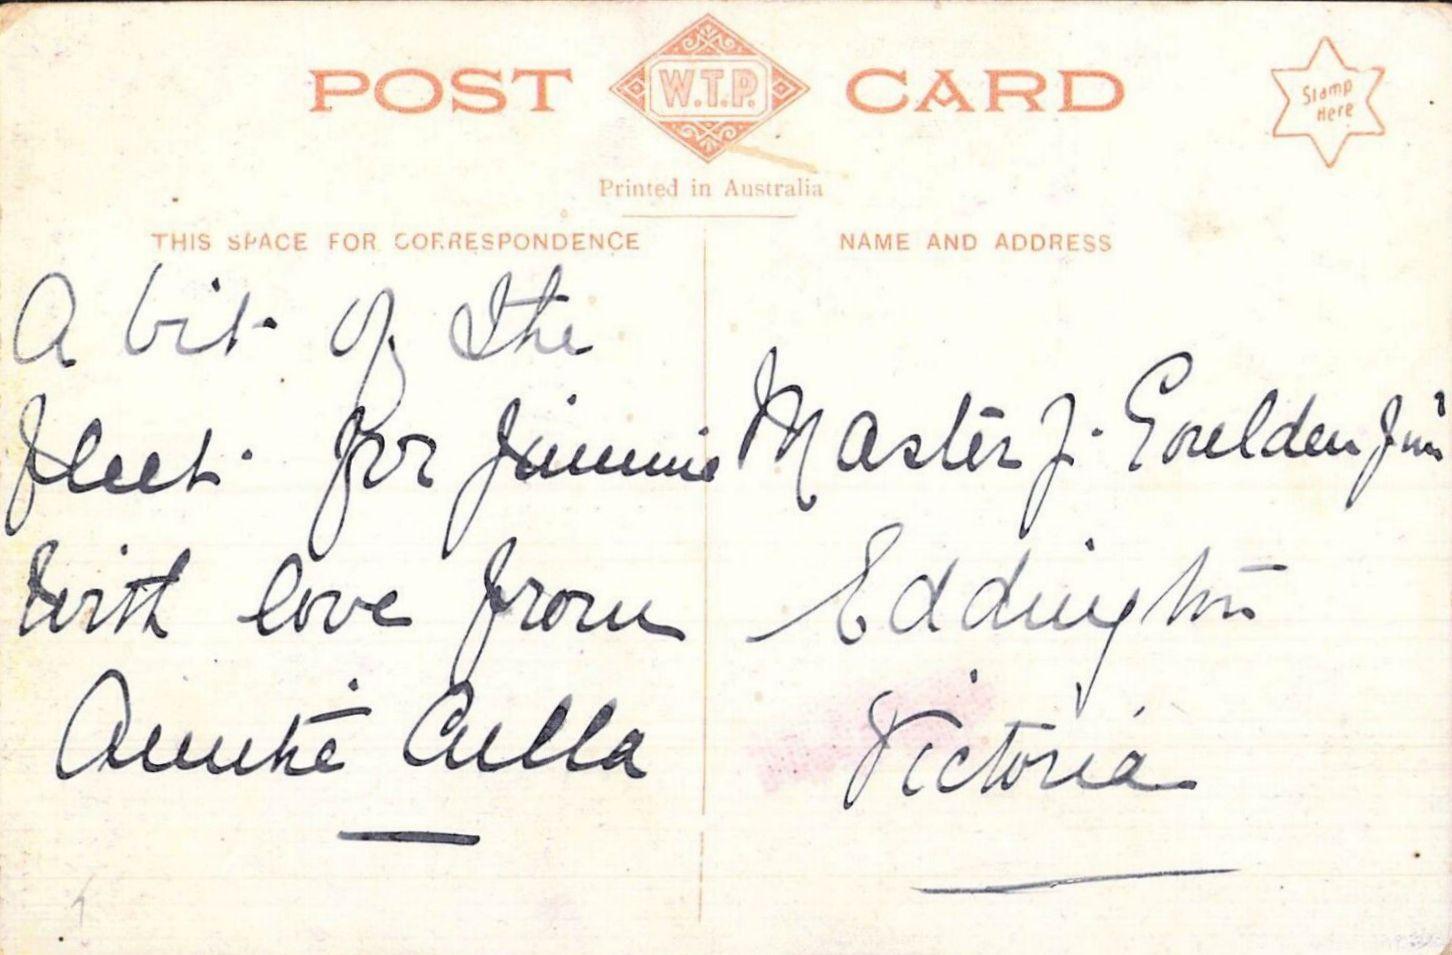 POST W.T.P. CARD
Stamp
Here
Printed in Australia
THIS SPACE FOR CORRESPONDENCE
A bit of the
fleet. for Jimmie
With love from
Auntie Culla
NAME AND ADDRESS
Master J. Goulden Jun
Eddington
Victoria